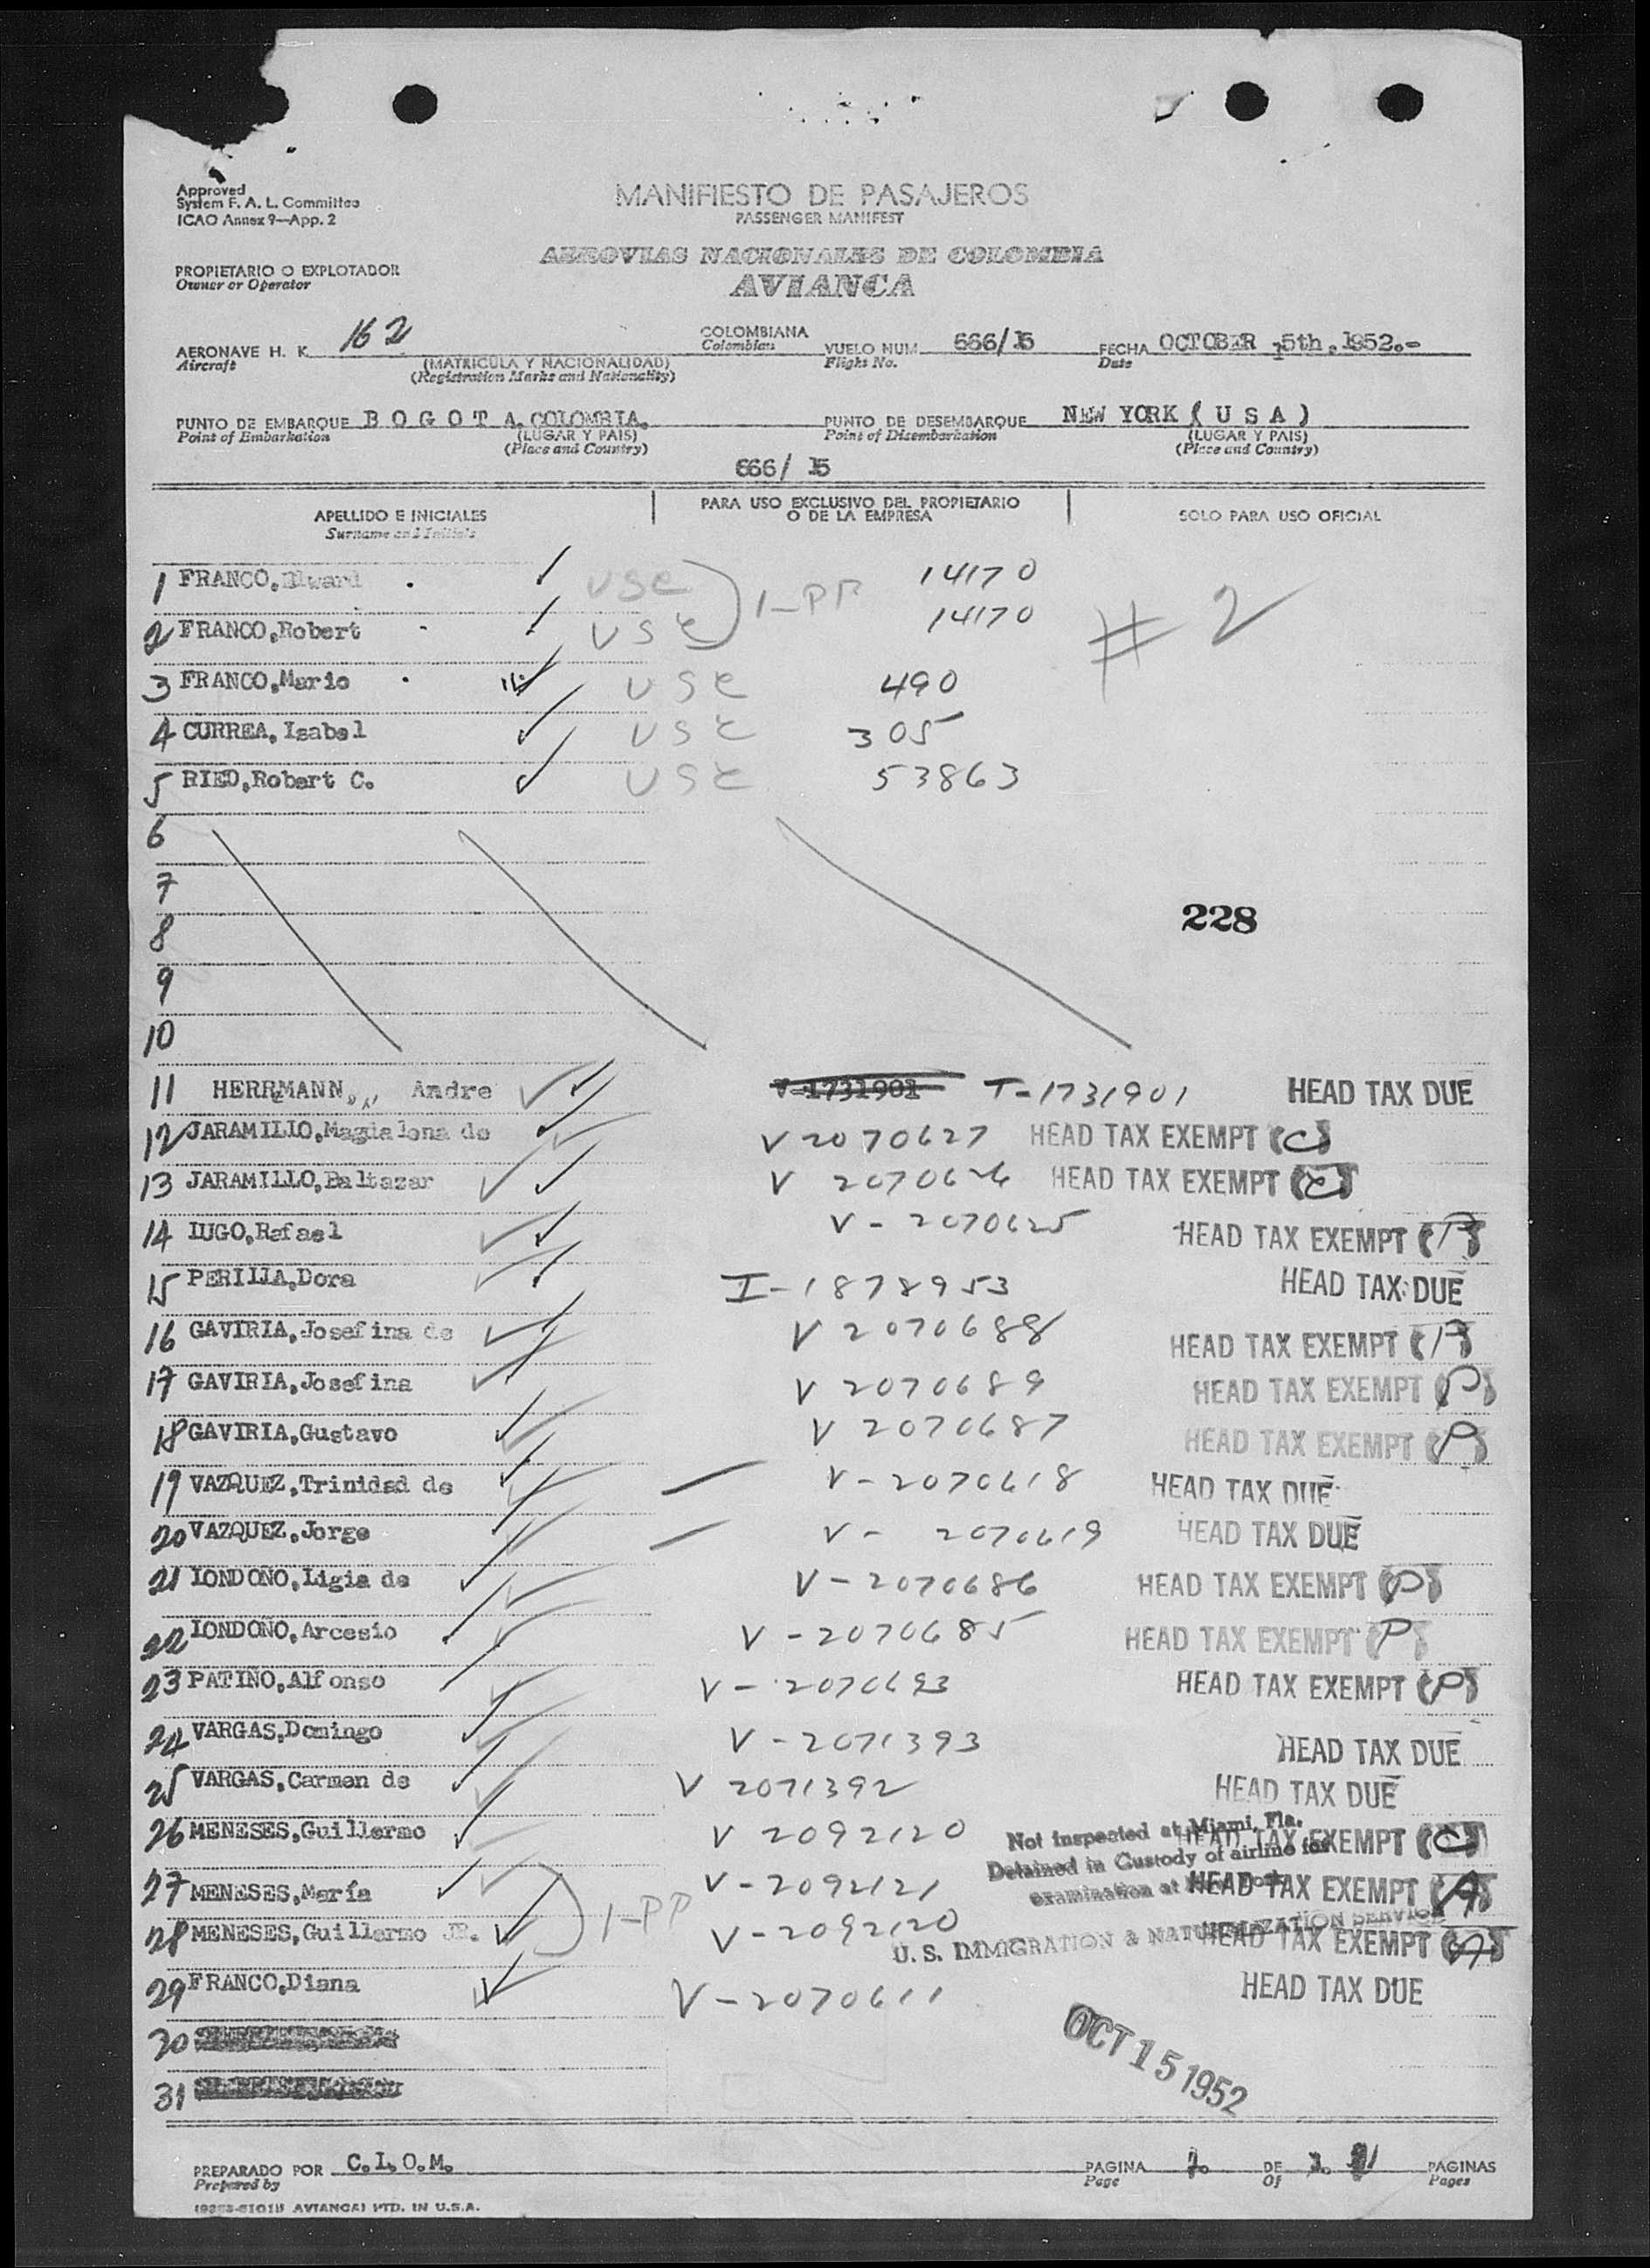 Approved
System F. A. L. Committee
ICAO Annex 9—App. 2
MANIFIESTO DE PASAJEROS
PASSENGER MANIFEST
AEROVIAS NACIONALES DE COLOMBIA
AVIANCA
PROPIETARIO O EXPLOTADOR
Owner or Operator
AERONAVE H. K. 162 COLOMBIANA VUELO NUM. 666/15 FECHA OCTOBER 15th.1952.-
Aircraft (MATRICULA Y NACIONALIDAD) Colombian Flight No. Date
(Registration Marks and Nationality)
PUNTO DE EMBARQUE B O G O T A, COLOMBIA. PUNTO DE DESEMBARQUE NEW YORK ( U S A )
Point of Embarkation (LUGAR Y PAIS) Point of Disembarkation (LUGAR Y PAIS)
(Place and Country) (Place and Country)
666/ 15
APELLIDO E INICIALES PARA USO EXCLUSIVO DEL PROPIETARIO O DE LA EMPRESA SOLO PARA USO OFICIAL
Surname and Initials
1 FRANCO, USC 1-PP 14170
2 FRANCO,Robert USC 14170 # 2
3 FRANCO,Mario USC 490
4 CURREA,Isabel USC 305
5 RIED,Robert C. USC 53863
6
7
8 228
9
10
11 HERRMANN, Andre V-1731901 T-1731901 HEAD TAX DUE
12 JARAMILLO,Magdalena de V 2070627 HEAD TAX EXEMPT (C)
13 JARAMILLO,Baltazar V HEAD TAX EXEMPT (C)
14 LUGO,Rafael V-2070625 HEAD TAX EXEMPT
15 PERILLA,Dora I-1878953 HEAD TAX DUE
16 GAVIRIA,Josefina de V 2070688 HEAD TAX EXEMPT
17 GAVIRIA,Josefina V 2070689 HEAD TAX EXEMPT (P)
18 GAVIRIA,Gustavo V 2070687 HEAD TAX EXEMPT (P)
19 VAZQUEZ,Trinidad de V-2070618 HEAD TAX DUE
20 VAZQUEZ,Jorge V-2070619 HEAD TAX DUE
21 LONDOÑO,Ligia de V-2070686 HEAD TAX EXEMPT (P)
22 LONDOÑO,Arcesio V-2070685 HEAD TAX EXEMPT (P)
23 PATIÑO,Alfonso V-2070693 HEAD TAX EXEMPT (P)
24 VARGAS,Domingo V-2071393 HEAD TAX DUE
25 VARGAS,Carmen de V 2071392 HEAD TAX DUE
26 MENESES,Guillermo V 2092120 HEAD TAX EXEMPT (C)
Not inspected at Miami, Fla.
Detained in Custody of airline for
examination at New York
27 MENESES,María V-2092121 HEAD TAX EXEMPT (A)
1-PP
28 MENESES,Guillermo JR. V-2092120 HEAD TAX EXEMPT (A)
U. S. IMMIGRATION & NATURALIZATION SERVICE
29 FRANCO,Diana V-2070611 HEAD TAX DUE
30
31
OCT 15 1952
PREPARADO POR C.L.O.M. PAGINA 1. DE PAGINAS
Prepared by Page Of Pages
AVIANCA) PTD. IN U.S.A.